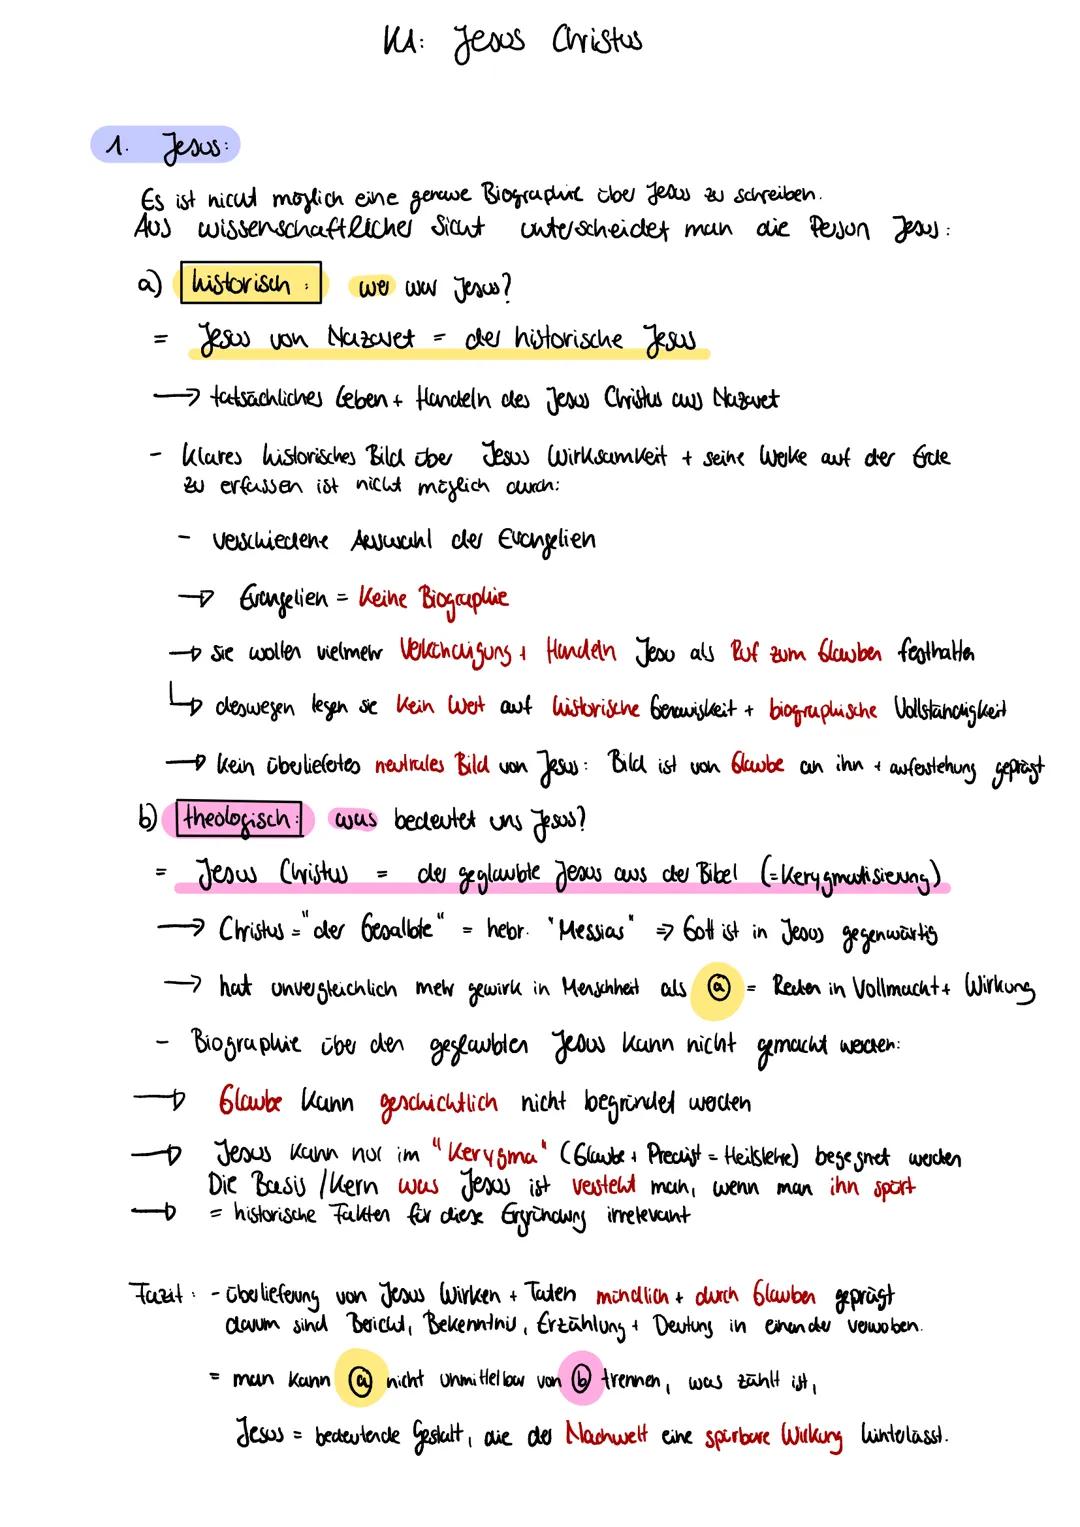 KA: Jesus Christus
1. Jesus:
Es ist nicht möglich eine genaue Biographie über Jesus zu schreiben.
Aus wissenschaftlicher Sicht unterscheidet man die Person Jesus:
a) historisch: wer war Jesus?
= Jesus von Nazaret = der historische Jesus
→ tatsächliches Leben + Handeln des Jesus Christus aus Nazaret
- Klares historisches Bild über Jesus Wirksamkeit + seine Werke auf der Erde
zu erfassen ist nicht möglich durch:
- verschiedene Auswahl der Evangelien
→ Evangelien = Keine Biographie
→ sie wollen vielmehr Verkündigung + Handeln Jesu als Ruf zum Glauben festhalten
↳ deswegen legen sie Kein Wert auf historische Genauigkeit + biographische Vollständigkeit
→ Kein überliefertes neutrales Bild von Jesus: Bild ist von Glaube an ihn + auferstehung geprägt
b) theologisch: was bedeutet uns Jesus?
= Jesus Christus = der geglaubte Jesus aus der Bibel (=Kerygmatisierung)
→ Christus = "der Gesalbte" = hebr. "Messias" ⇒ Gott ist in Jesus gegenwärtig
→ hat unvergleichlich mehr gewirk in Menschheit als ⓐ = Reden in Vollmacht + Wirkung
- Biographie über den geglaubten Jesus kann nicht gemacht werden:
→ Glaube Kann geschichtlich nicht begründet werden
→ Jesus Kann nur im "Kerygma" (Glaube + Predigt = Heilslehre) begegnet werden
Die Basis / Kern was Jesus ist versteht man, wenn man ihn spürt
→ = historische Fakten für diese Ergründung irrelevant
Fazit: - überlieferung von Jesus Wirken + Taten mündlich + durch Glauben geprägt
darum sind Bericht, Bekenntnis, Erzählung + Deutung in einander verwoben.
= man Kann ⓐ nicht unmittelbar von ⓑ trennen, was zählt ist,
Jesus = bedeutende Gestalt, die der Nachwelt eine spürbare Wirkung hinterlässt.